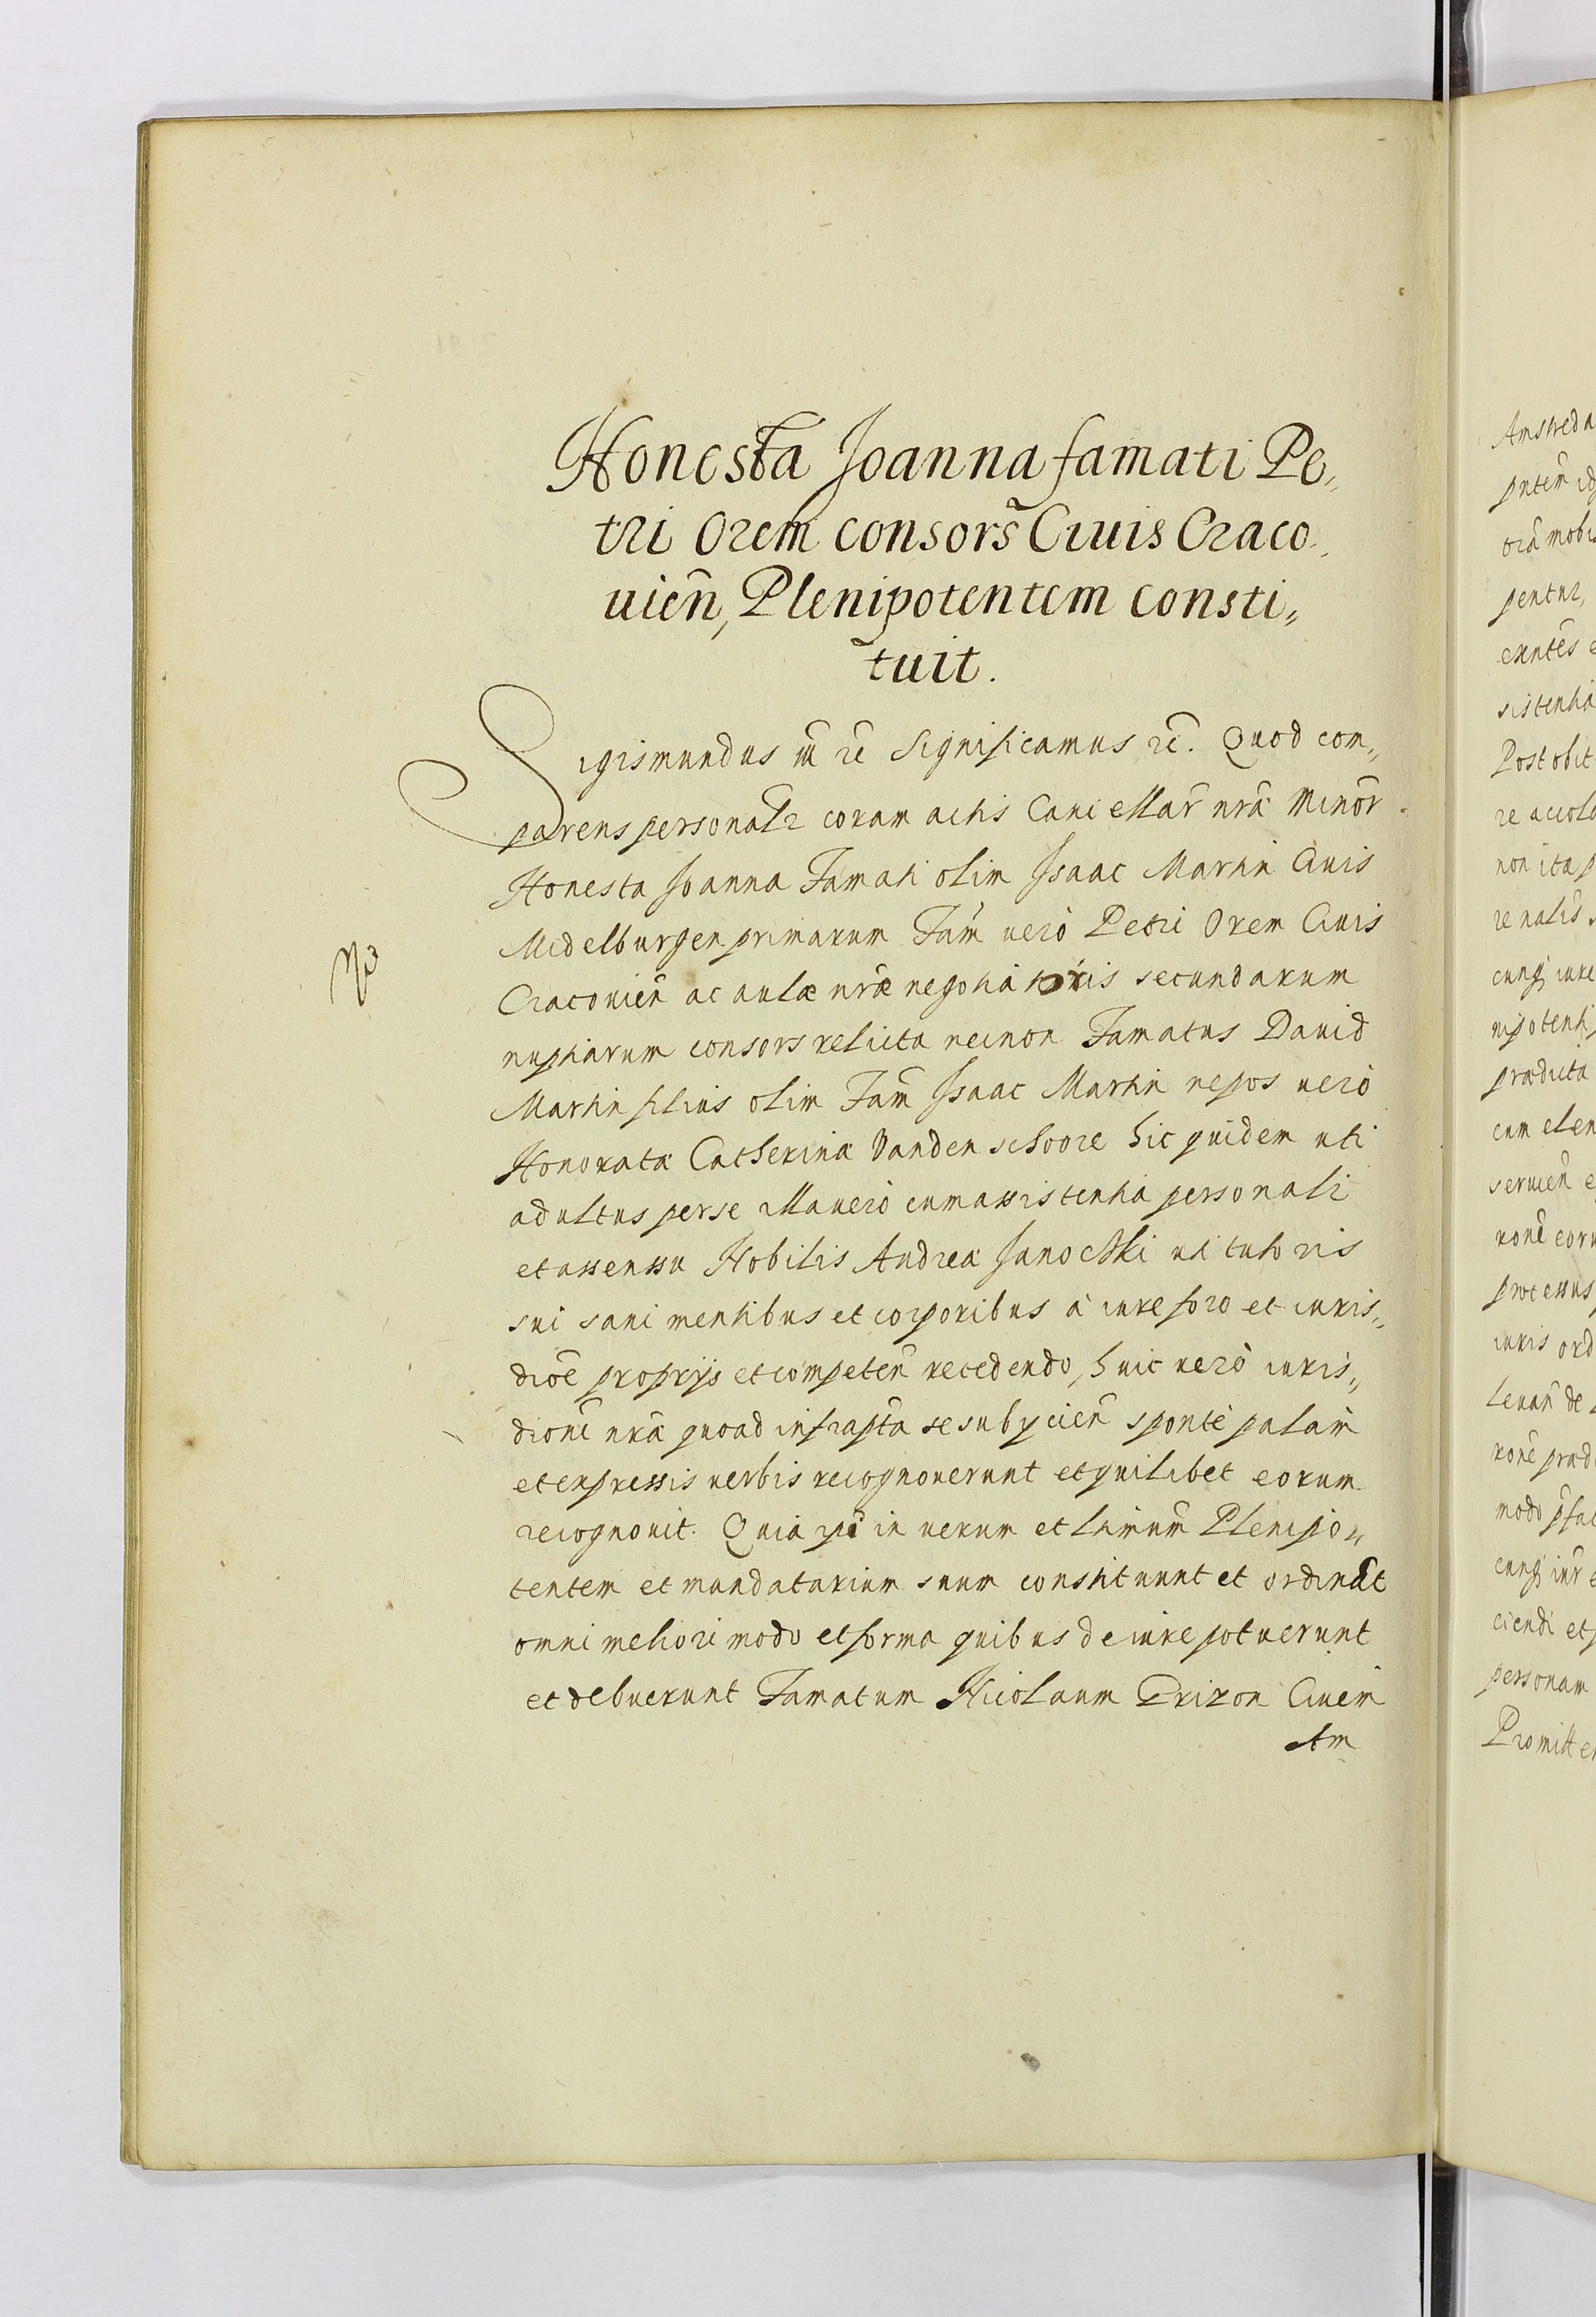 Honesta Joanna famati Pe„
tri Orem consors Ciuis Craco„
uien̄, Plenipotentem consti„
tuit.
Sigismundus iii rē Significamus rē. Quod com„
parens personalr coram actis Cancellar̄ nr̄a Minor̄
Honesta Joanna Famati olim Isaac Martin Ciuis
Midelburgen primarum Fam̄ uerò Petri Orem Ciuis
Cracouien̄ ac aulæ nr̄æ negotiatoris secundarum
nuptiarum consors relicta necnon Famatus Dauid
Martin filius olim Fam̄ Isaac Martin nepos uerò
Honorata Catherina Vanden schoore hic quidem uti
adultus per se illa uerò cum assistentia personali
et assensu Nobilis Andrea Janoc uti tutoris
sui sani mentibus et corporibus à iure foro et iuris„
dioē proprijs et competen̄ recedendo, huic uerò iuris„
dioni nr̄a quoad infrapta se subycien̄ spontè palàm
et expressis uerbis recognouerunt et quilibet eorum
recognouit. Quia ipi in uerum et l̄timum̄ Plenipo„
tentem et mandatarium suum constituunt et ordinat
omni meliori modo et forma quibus de iure potuerunt
et debuerunt Famatum Nicolaum Ciuem
Am
Amstreda
pntem̄
mobi
pentur,
exntēs e
sistentia
Post obit
re accola
non ita p
cunq iure
nipotenti
prædicta
cum elem
seruien̄ e
ronē coru
processus
iuris ord
leuan̄ de
ronē præd
modo
cunq iur̄
ciendi et
personam
Promitte